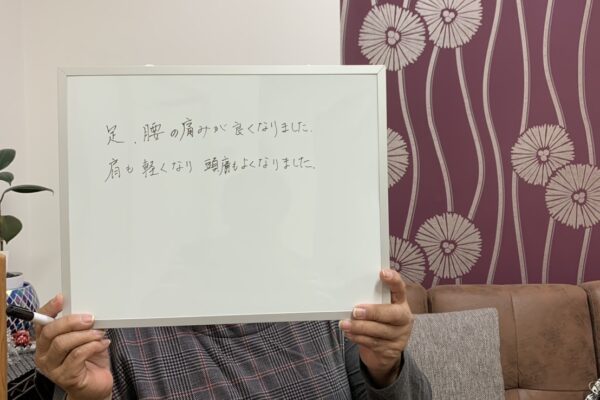 足、腰の痛みが良くなりました。
肩も軽くなり 頭痛もよくなりました。